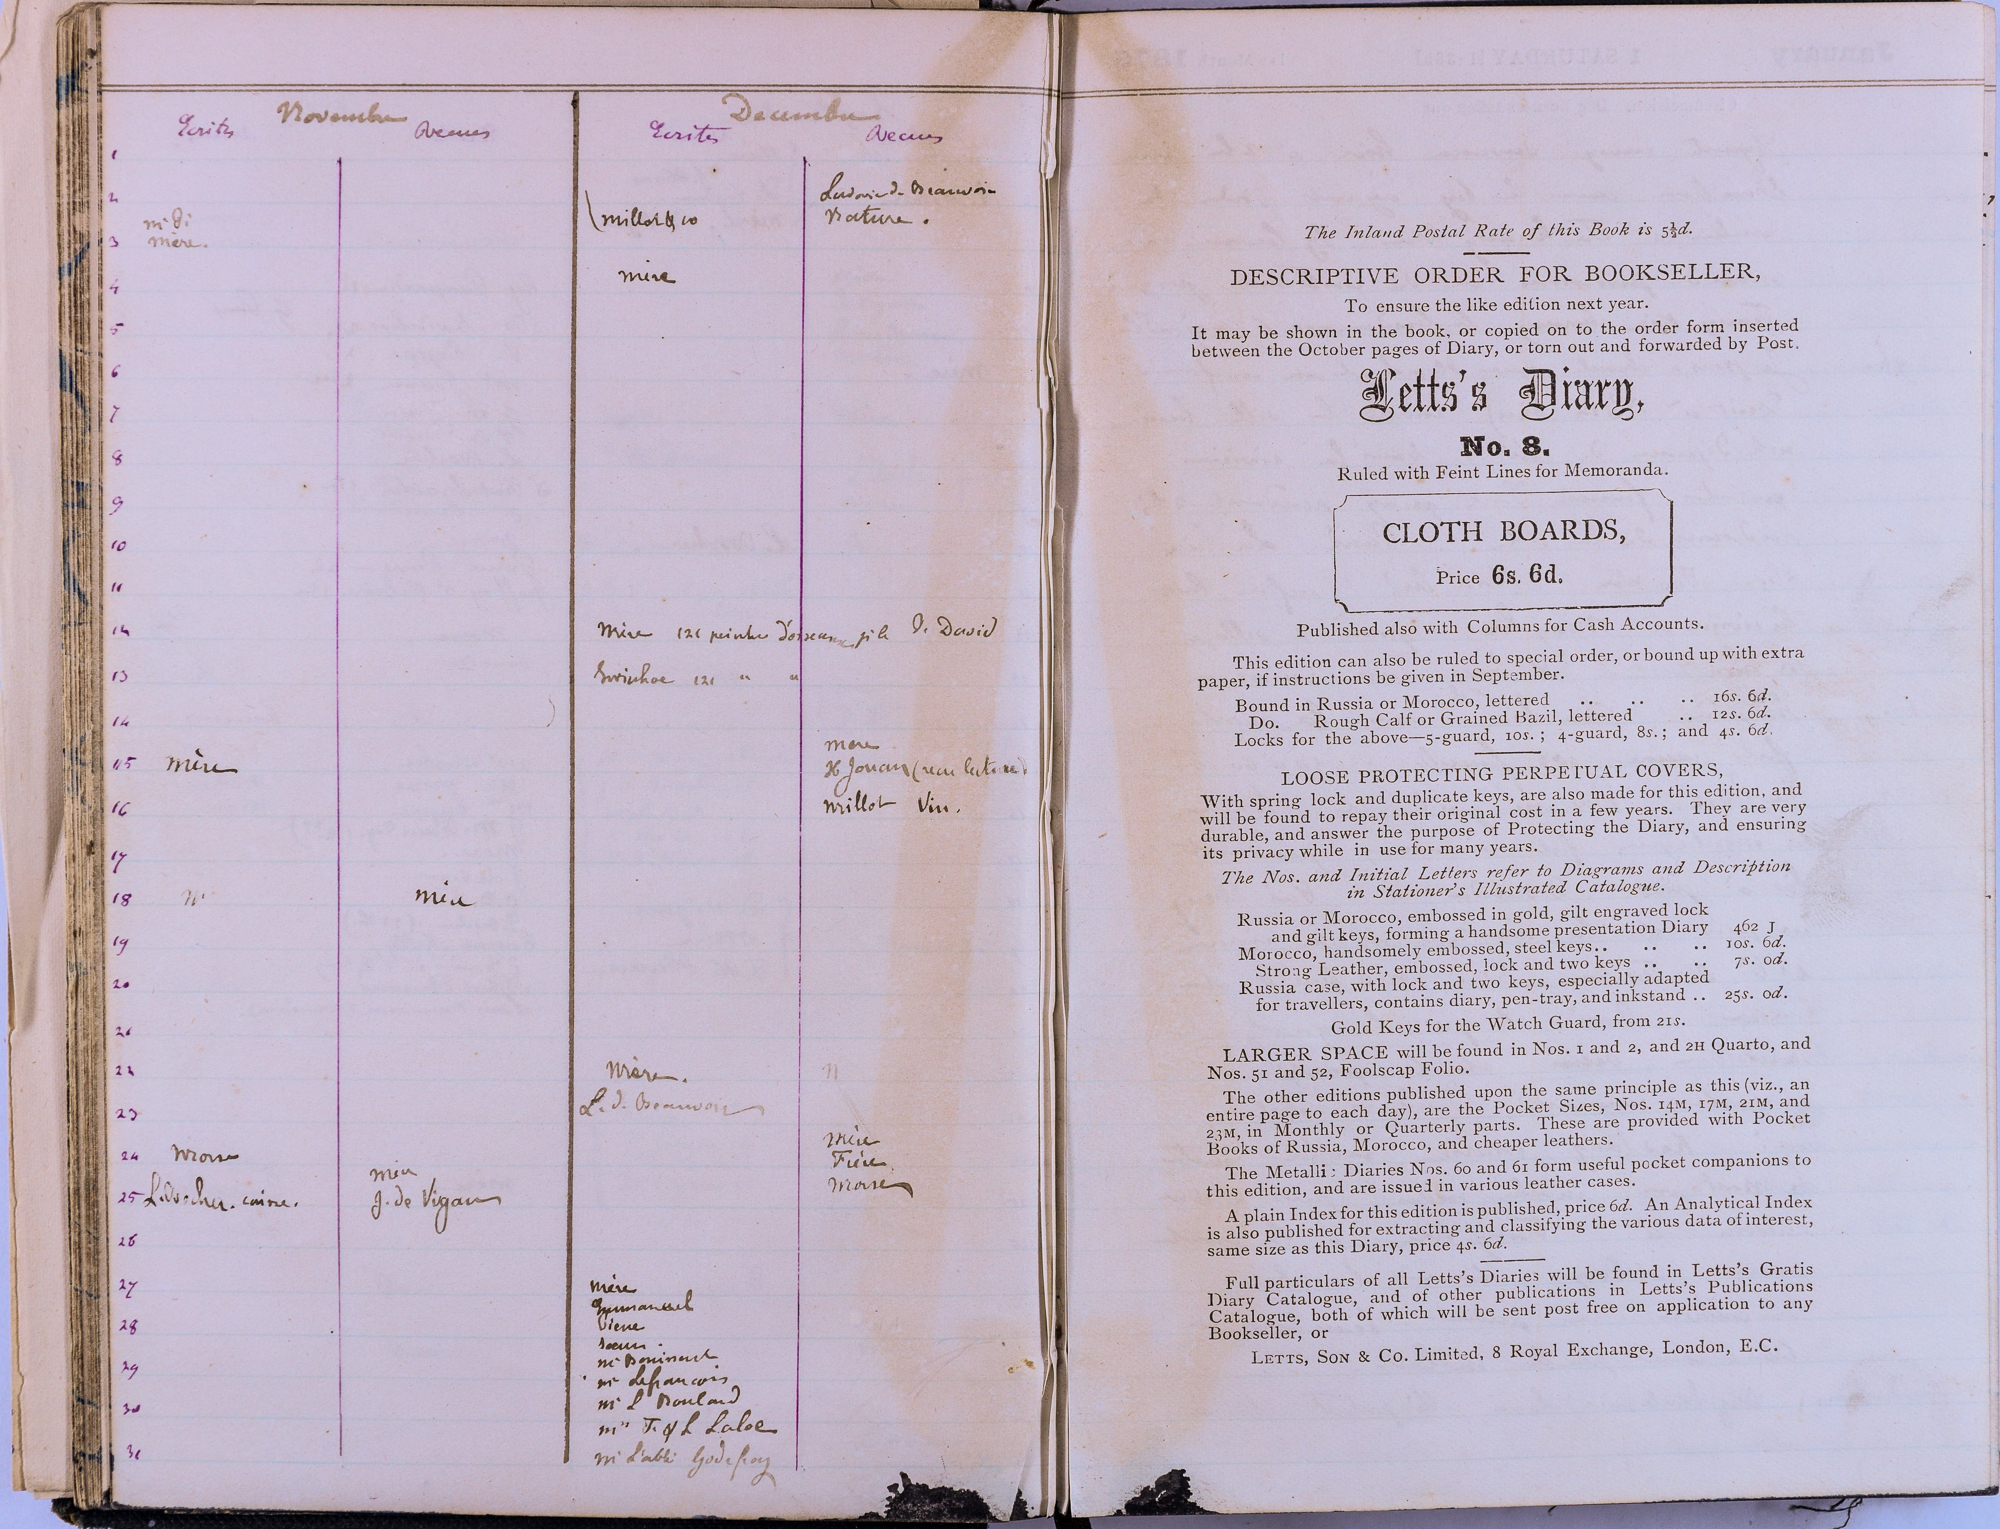 Novembre
Decembre
Ecrites
Recues
Ecrites
Recues
1
2
Ludovic de Beauvoir
Millot & co
Nature.
3
mère.
4
mère
5
6
7
8
9
10
11
12 Mère 121 peintre d'oiseaux, fils de David
13 Swinhoe 121 " "
14
mere
15 Mère
H Jouan (
16 Millot Vin.
17
18 mère
19
20
21
22 Mère.
23 L. d. Beauvoir
mère
24 Morse
Frère
mère
25
J. de Vigan
Morse
26
27 mère
Emmanuel
28
soeur.
29
mr Lefrancois
30 mr L Boulard
mrs F. & L Laloe
31 mr L'abbé Godefroy
The Inland Postal Rate of this Book is 5½d.
DESCRIPTIVE ORDER FOR BOOKSELLER,
To ensure the like edition next year.
It may be shown in the book, or copied on to the order form inserted
between the October pages of Diary, or torn out and forwarded by Post.
Letts's Diary,
No. 8.
Ruled with Feint Lines for Memoranda.
CLOTH BOARDS,
Price 6s. 6d.
Published also with Columns for Cash Accounts.
This edition can also be ruled to special order, or bound up with extra
paper, if instructions be given in September.
Bound in Russia or Morocco, lettered .. .. .. 16s. 6d.
Do. Rough Calf or Grained Bazil, lettered .. 12s. 6d.
Locks for the above—5-guard, 10s. ; 4-guard, 8s. ; and 4s. 6d.
LOOSE PROTECTING PERPETUAL COVERS,
With spring lock and duplicate keys, are also made for this edition, and
will be found to repay their original cost in a few years. They are very
durable, and answer the purpose of Protecting the Diary, and ensuring
its privacy while in use for many years.
The Nos. and Initial Letters refer to Diagrams and Description
in Stationer's Illustrated Catalogue.
Russia or Morocco, embossed in gold, gilt engraved lock
and gilt keys, forming a handsome presentation Diary 462 J
Morocco, handsomely embossed, steel keys.. .. .. 10s. 6d.
Strong Leather, embossed, lock and two keys .. .. 7s. 0d.
Russia case, with lock and two keys, especially adapted
for travellers, contains diary, pen-tray, and inkstand .. 25s. 0d.
Gold Keys for the Watch Guard, from 21s.
LARGER SPACE will be found in Nos. 1 and 2, and 2H Quarto, and
Nos. 51 and 52, Foolscap Folio.
The other editions published upon the same principle as this (viz., an
entire page to each day), are the Pocket Sizes, Nos. 14M, 17M, 21M, and
23M, in Monthly or Quarterly parts. These are provided with Pocket
Books of Russia, Morocco, and cheaper leathers.
The Metalli: Diaries Nos. 60 and 61 form useful pocket companions to
this edition, and are issued in various leather cases.
A plain Index for this edition is published, price 6d. An Analytical Index
is also published for extracting and classifying the various data of interest,
same size as this Diary, price 4s. 6d.
Full particulars of all Letts's Diaries will be found in Letts's Gratis
Diary Catalogue, and of other publications in Letts's Publications
Catalogue, both of which will be sent post free on application to any
Bookseller, or
LETTS, SON & CO. Limited, 8 Royal Exchange, London, E.C.